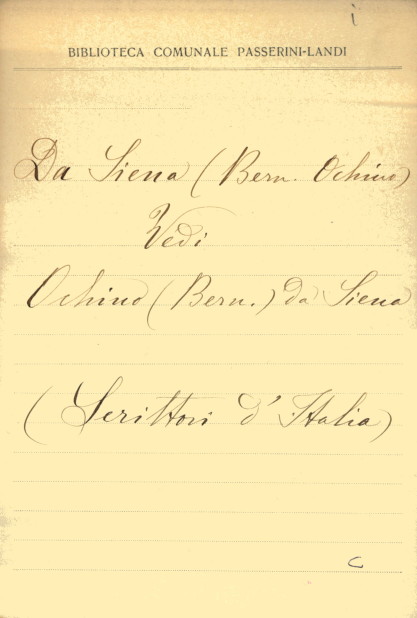 i
BIBLIOTECA COMUNALE PASSERINI-LANDI
Da Siena (Bern. Ochino)
Vedi
Ochino (Bern.) da Siena
(Scrittori d'Italia)
C